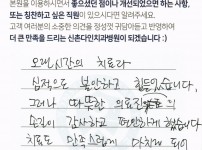 본원을 이용하시면서 좋으셨던 점이나 개선되었으면 하는 사항,
또는 칭찬하고 싶은 직원이 있으시다면 알려주세요.
고객 여러분의 소중한 의견을 정성껏 귀담아듣고 반영하여
더 큰 만족을 드리는 신촌다인치과병원이 되겠습니다 :)
오랜시간의 치료라
심적으로 불안하고 힘들었습니다.
그러나 따뜻한 의료진
손길이 감사하고 편안하게 했습니다
치료도 만족스럽게 마치게 되어